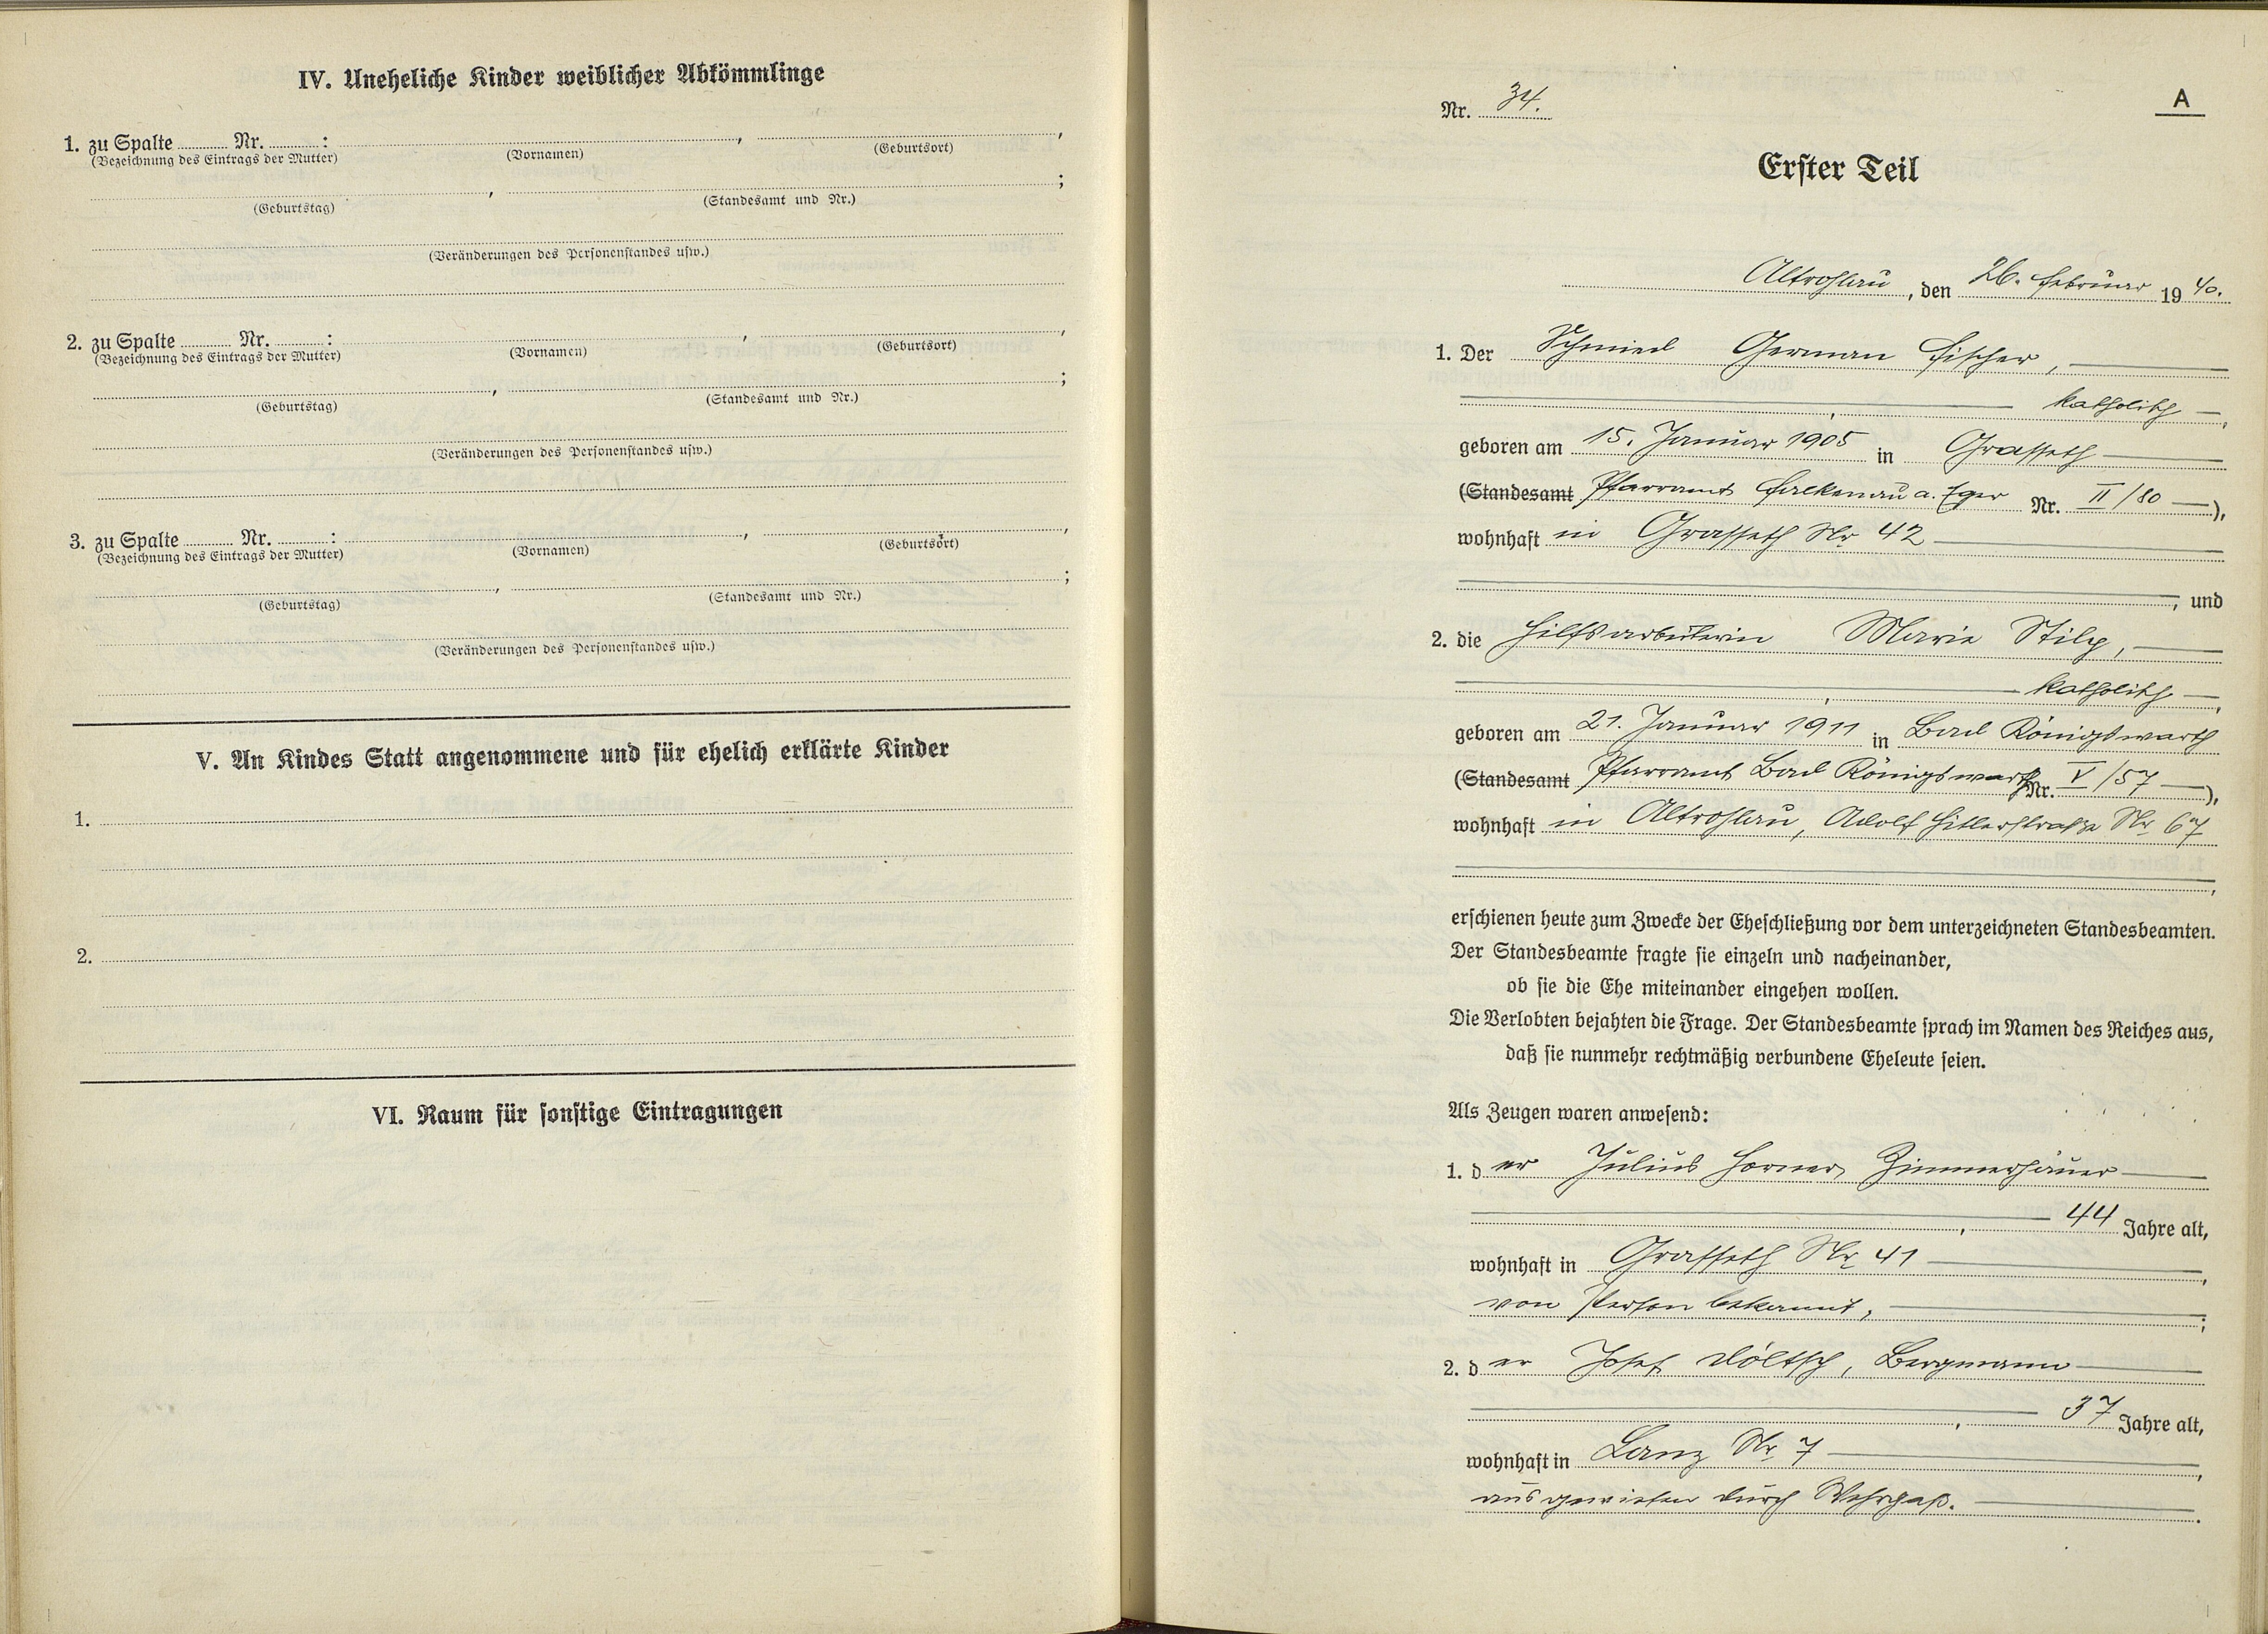 IV. Uneheliche Kinder weiblicher Abkömmlinge
1. zu Spalte ........ Nr. ........ :
(Bezeichnung des Eintrags der Mutter) (Vornamen) (Geburtsort)
(Geburtstag) (Standesamt und Nr.)
(Veränderungen des Personenstandes usw.)
2. zu Spalte ........ Nr. ........ :
(Bezeichnung des Eintrags der Mutter) (Vornamen) (Geburtsort)
(Geburtstag) (Standesamt und Nr.)
(Veränderungen des Personenstandes usw.)
3. zu Spalte ........ Nr. ........ :
(Bezeichnung des Eintrags der Mutter) (Vornamen) (Geburtsort)
(Geburtstag) (Standesamt und Nr.)
(Veränderungen des Personenstandes usw.)
V. An Kindes Statt angenommene und für ehelich erklärte Kinder
1.
2.
VI. Raum für sonstige Eintragungen
Nr. 34.
A
Erster Teil
Altrohlau, den 26. Februar 1940.
1. Der Schmied German Fischer,
katholisch,
geboren am 15. Januar 1905 in Grasseth
(Standesamt Pfarramt Falkenau a. Eger Nr. II/80),
wohnhaft in Grasseth Nr 42
, und
2. die Hilfsarbeiterin Marie Stilp,
katholisch,
geboren am 21. Januar 1911 in Bad Königswarth
(Standesamt Pfarramt Bad Königswarth Nr. V/57),
wohnhaft in Altrohlau, Adolf Hitlerstraße Nr 67
,
erschienen heute zum Zwecke der Eheschließung vor dem unterzeichneten Standesbeamten.
Der Standesbeamte fragte sie einzeln und nacheinander,
ob sie die Ehe miteinander eingehen wollen.
Die Verlobten bejahten die Frage. Der Standesbeamte sprach im Namen des Reiches aus,
daß sie nunmehr rechtmäßig verbundene Eheleute seien.
Als Zeugen waren anwesend:
1. der Julius Horner, Zimmerhäuer
, 44 Jahre alt,
wohnhaft in Grasseth Nr 41,
von Person bekannt,;
2. der Josef Döltsch, Bergmann
, 37 Jahre alt,
wohnhaft in Lanz Nr 7,
ausgewiesen durch Wehrpaß.